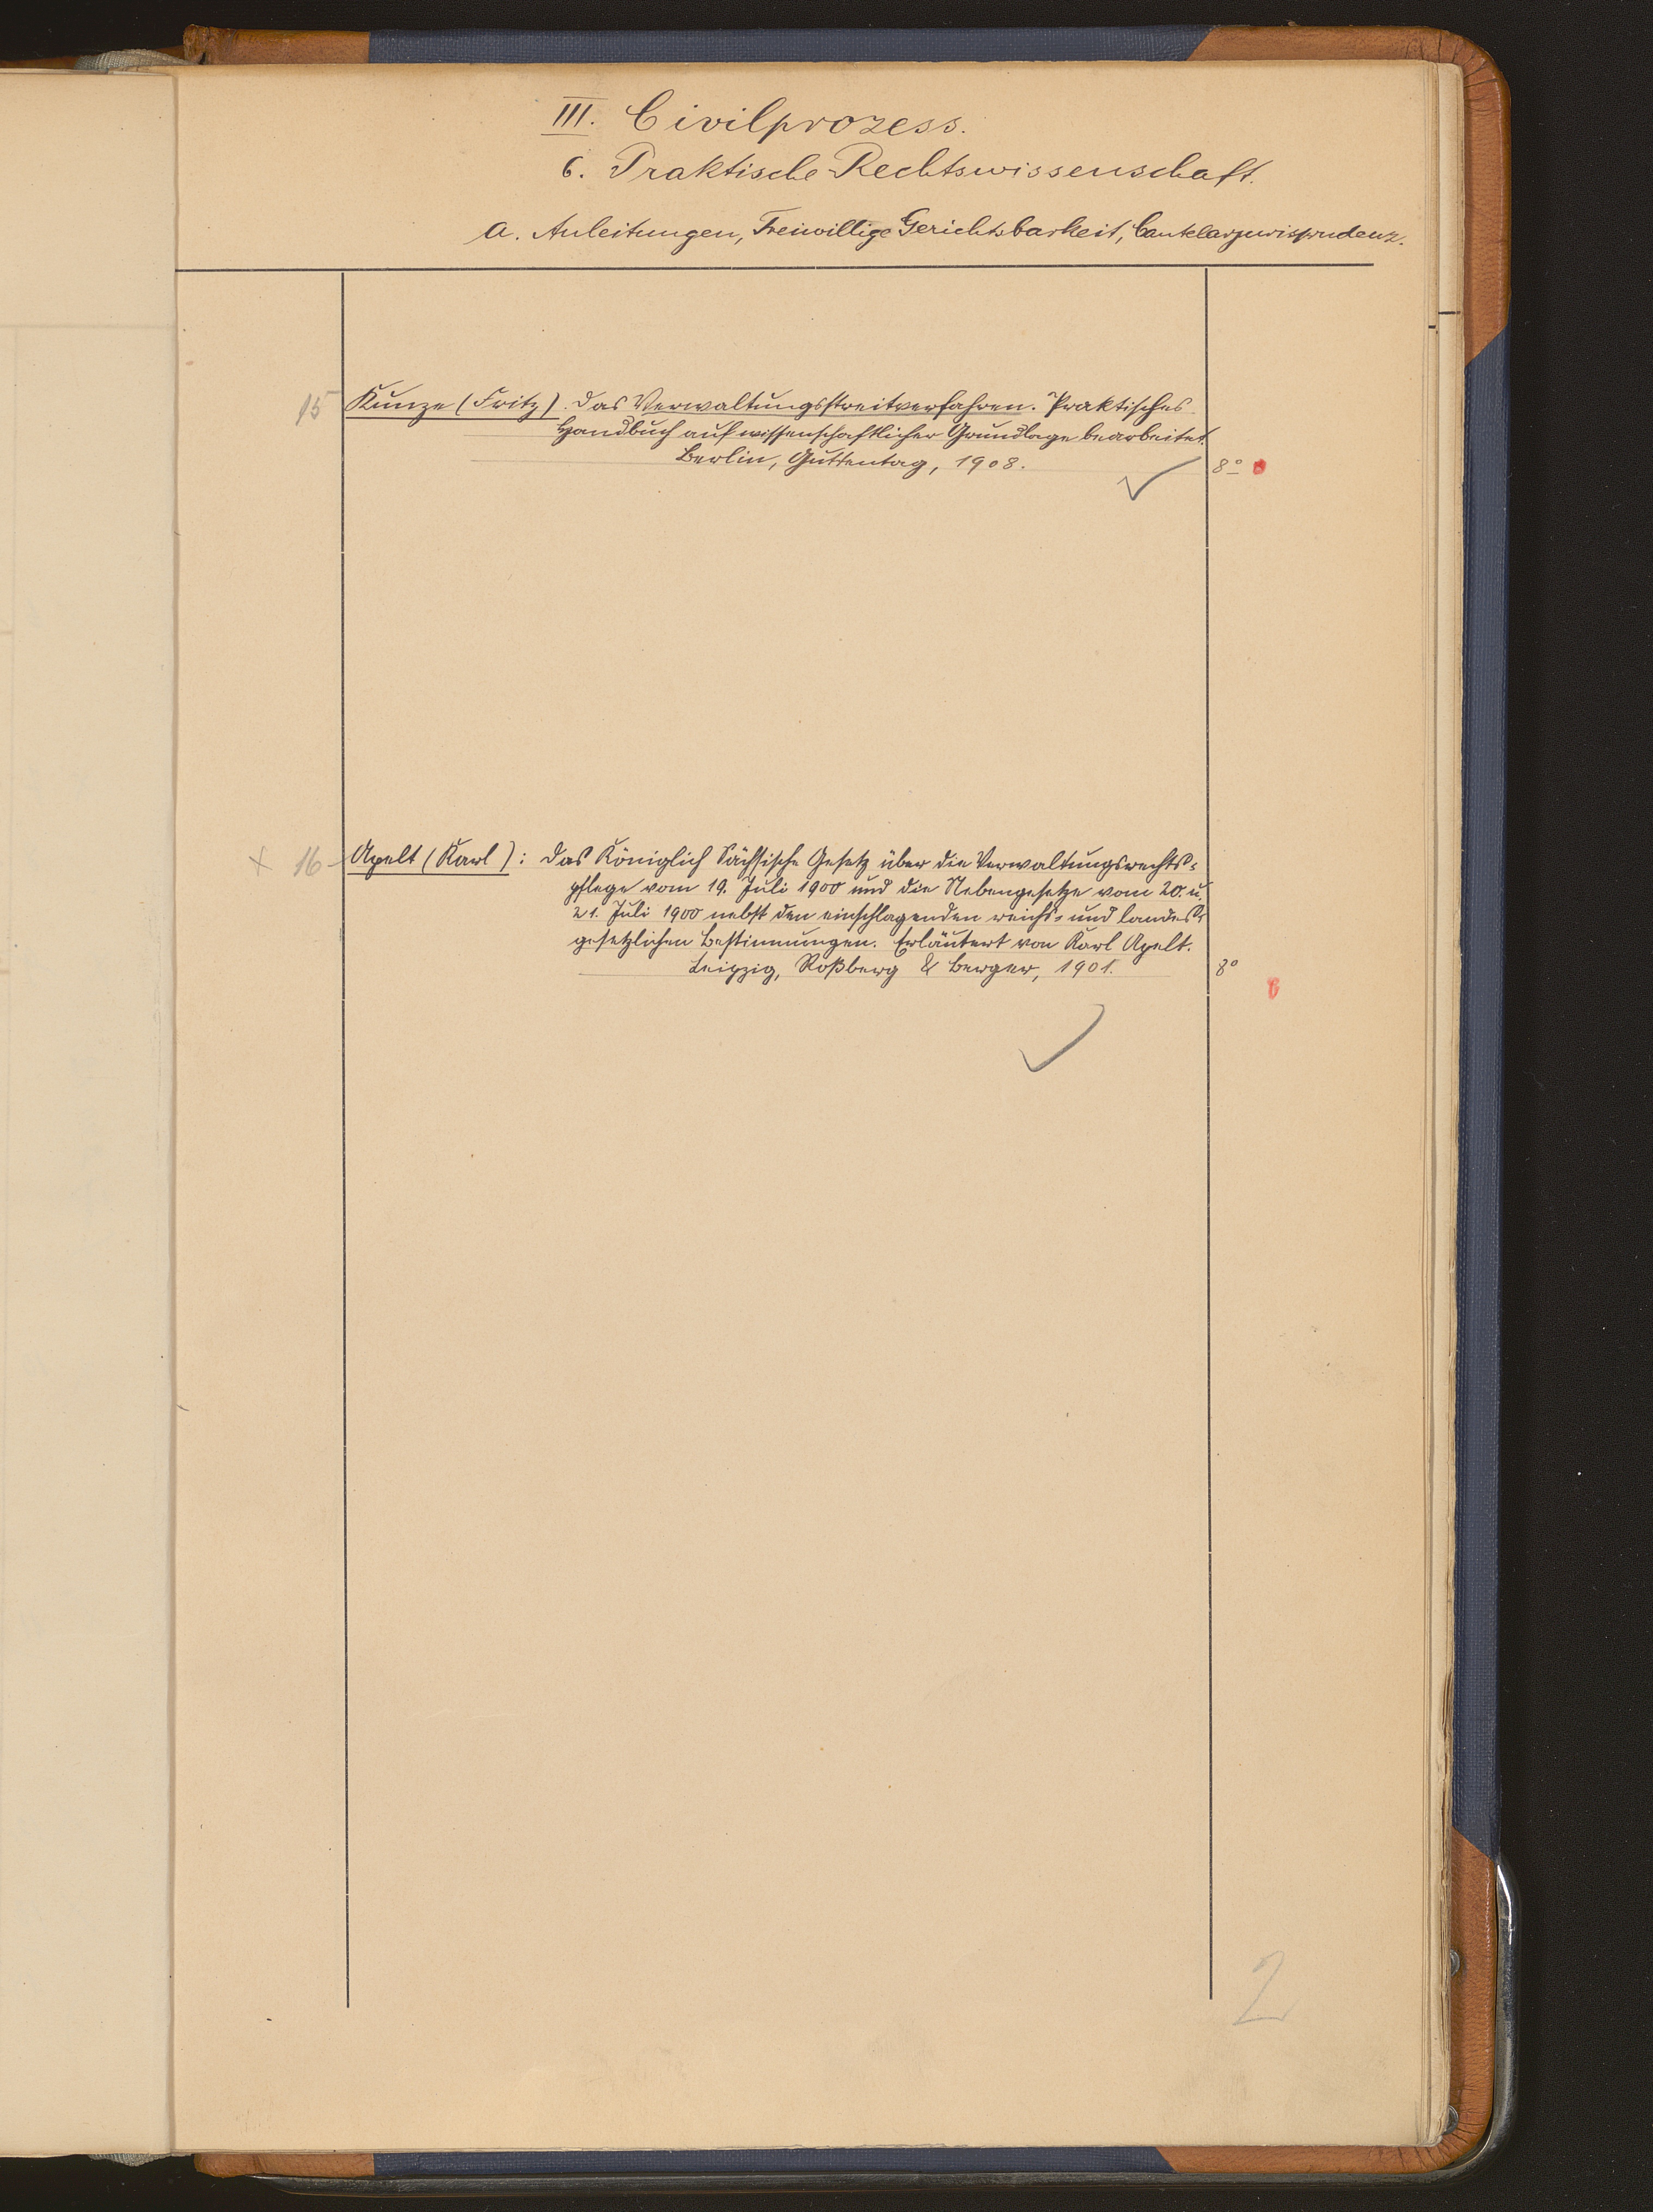 III. Civilprozess.
6. Praktische Rechtswissenschaft.
a. Anleitungen, Freiwillige Gerichtsbarkeit, Cautelarjurisprudenz.
15 Kunze (Fritz). Das Verwaltungsstreitverfahren. Praktisches
Handbuch auf wissenschaftlicher Grundlage bearbeitet.
Berlin, Guttentag, 1908. 8°
x 16 Apelt (Karl): Das Königlich Sächsische Gesetz über die Verwaltungsrechts-
pflege vom 19. Juli 1900 und die Nebengesetze vom 20. u.
21. Juli 1900 nebst den einschlagenden reichs- und landes-
gesetzlichen Bestimmungen. Erläutert von Karl Apelt.
Leipzig, Roßberg & Berger, 1901. 8°
2